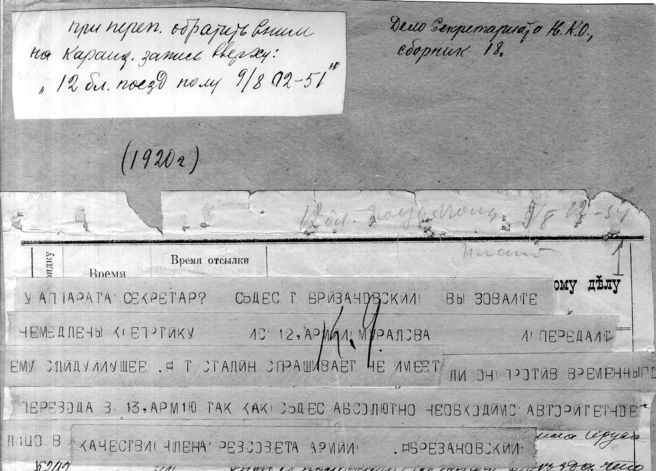 при переп. обратить вним
на каранд. запись вверху:
„12 бл. поезд полу 9/8 02-51"
Дело Секретариата Н.К.О.,
сборник 18.
(1920г)
12 бл. 9/8 02-51
1
Время
Время отсылки
ому дѣлу
У АППАРАТА СЕКРЕТАР? СЬДЕС Т БРИЗАНОВСКИЙ ВЫ ЗОВАЛТЕ
НЕМЕДЛЕНЫ К ИС 12, АРМИИ МУРАЛОВА И ПЕРЕДАЛТ
К.Ч.
ЕМУ СЛИДУЛИУЩЕЕ . Я Т СТАЛИН СПРАШИВАЕТ НЕ ИМЕЕТ ЛИ ОН ПРОТИВ ВРЕМЕННЫГО
ПЕРЕВОДА В 13, АРМІЮ ТАК КАК СЬДЕС АБСОЛЮТНО НЕОБХОДИМО АВТОРИТЕТНОЕ
ЛИЦО В КАЧЕСТВИ ЧЛЕНА РЕВСОВЕТА АРМИИ . ЯБРЕЗАНОВСКИЙ